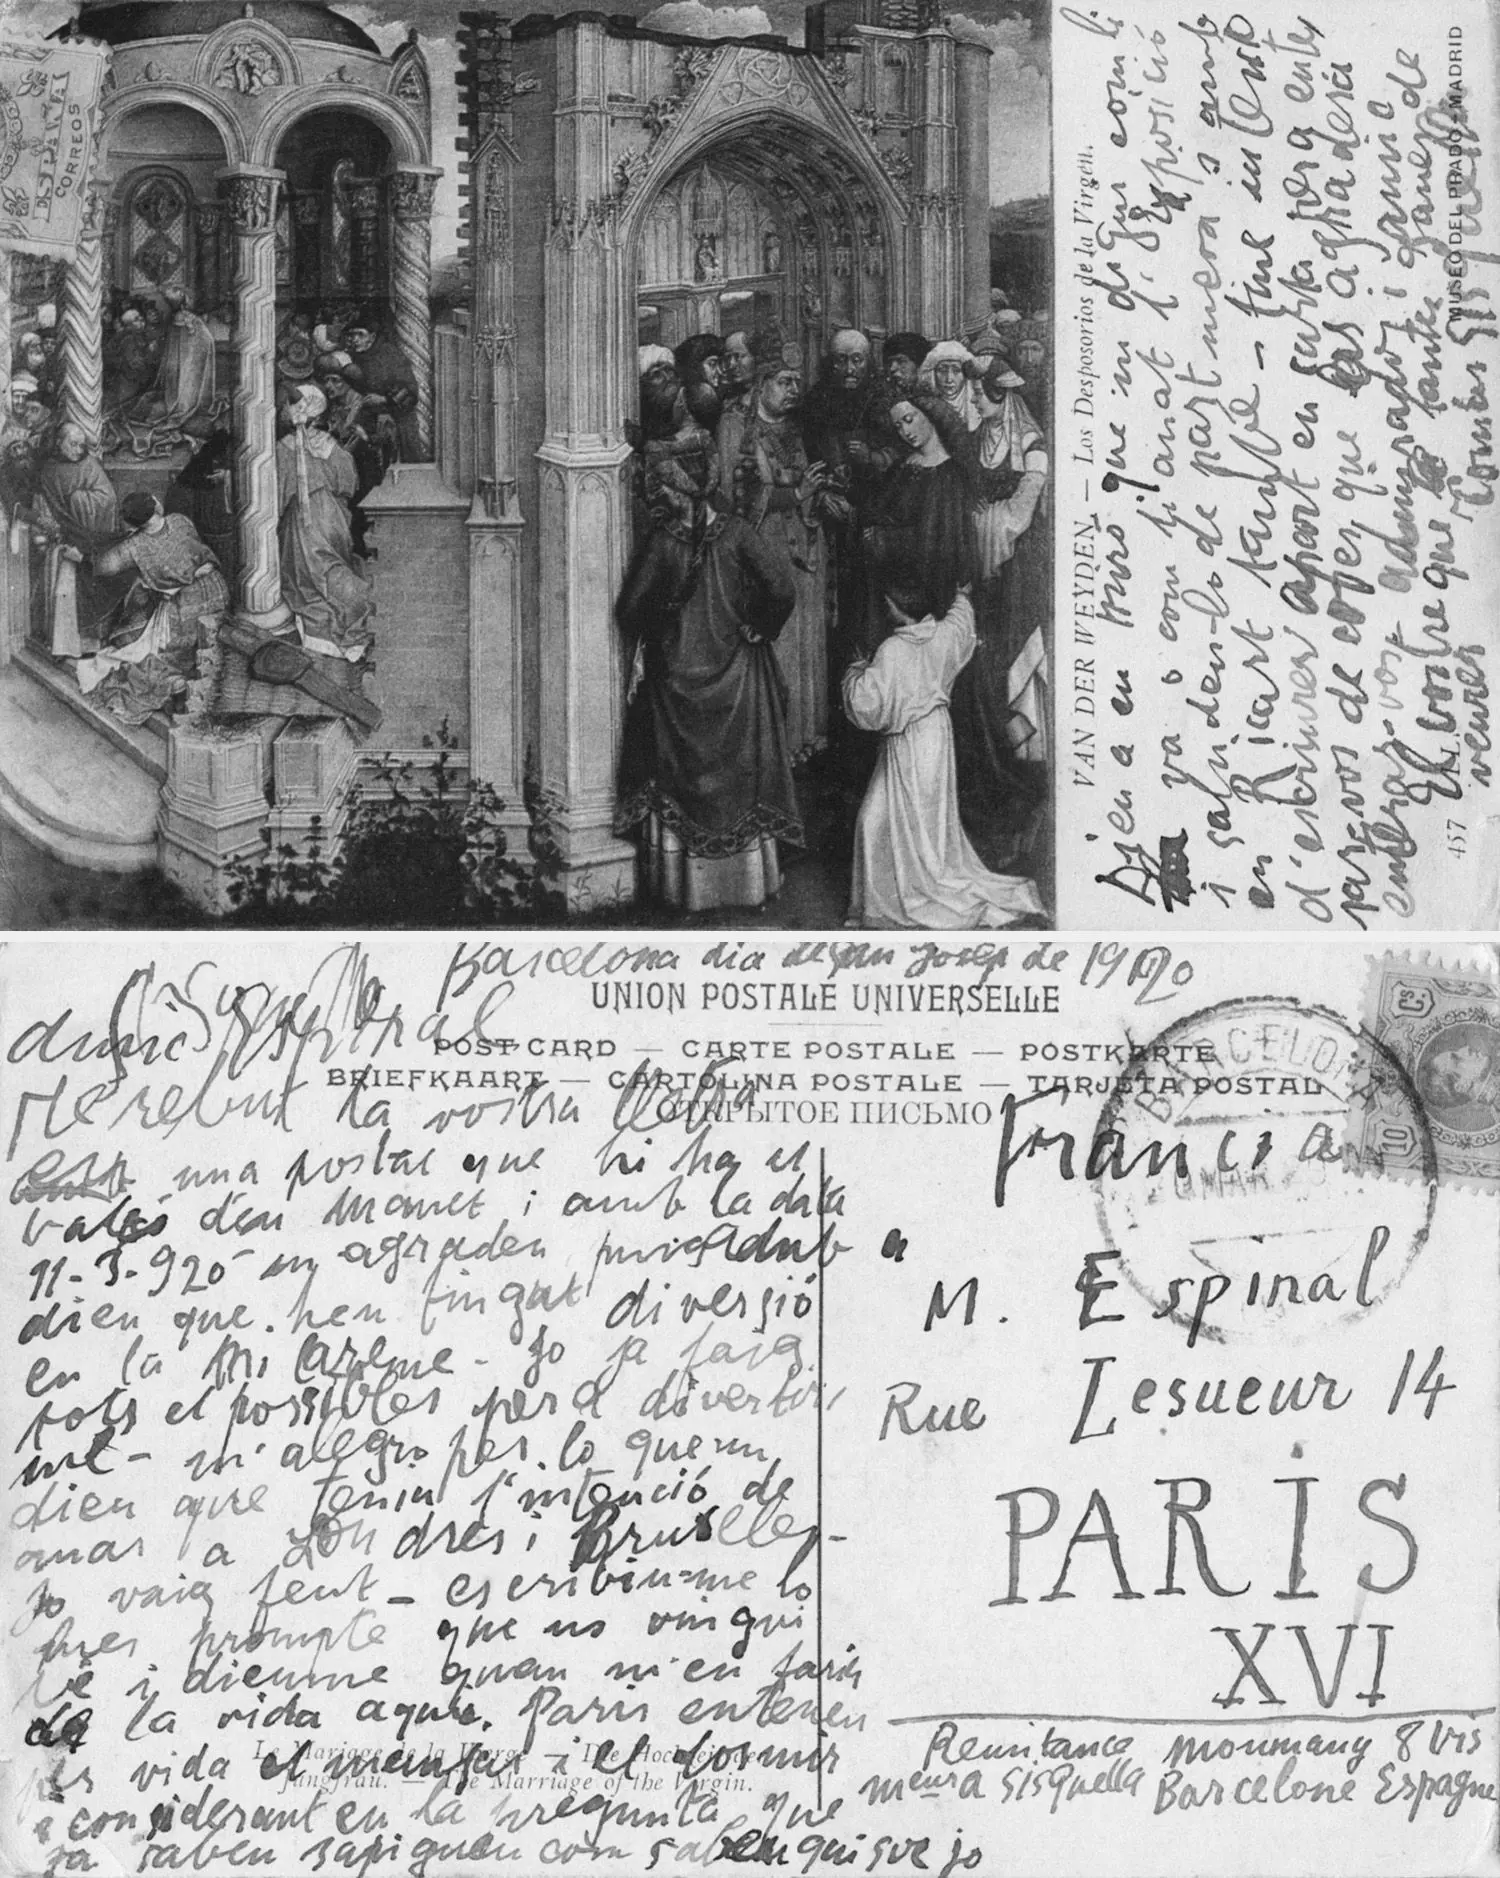 ESPAÑA
CORREOS
VAN DER WEYDEN. — Los Desposorios de la Virgen.
457
MUSEO DEL PRADO - MADRID
Dieu a en Miró que m digui com li
va o com li anat l'Exposició
i saludeu-lo de part meva i amb
en Ricart també - tinc interès
d'escriures apart en sa carta
parleu-vos de coses que us agradaria
admirador i amic
El vostre que tantes ganes de
veure Tomàs Gisquella
Barcelona dia de San Josep de 1920
UNION POSTALE UNIVERSELLE
POST CARD — CARTE POSTALE — POSTKARTE
BRIEFKAART — CARTOLINA POSTALE — TARJETA POSTAL
ОТКРЫТОЕ ПИСЬМО
amic Espinal
He rebut la vostra
una postal que hi ha el
d'en Manet i amb la data
11-3-920 m agraden
dieu que heu tingut diversió
en la Mi Careme - Jo ja faig
tots el possibles per a divertir
me - m'alegro per lo que m
dieu que teniu l'intenció de
anar a Londres i Bruselles -
Jo vaig fent - escribiu-me lo
mes prompte que us vingui
bé i dieume quan m'en faria
de la vida aqui. Paris entenen
per vida el menjar i el dormir
considerant en la pregunta que
ja saben sapiguen com saben qui soc jo
Le Mariage de la Vierge — Die Hochzeit der
Jungfrau. — The Marriage of the Virgin.
BARCELONA
10
Francia
a
M. Espinal
Rue Lesueur 14
PARIS
XVI
Remitance Moumany 8 Vis
Gisquella Barcelone Espagne